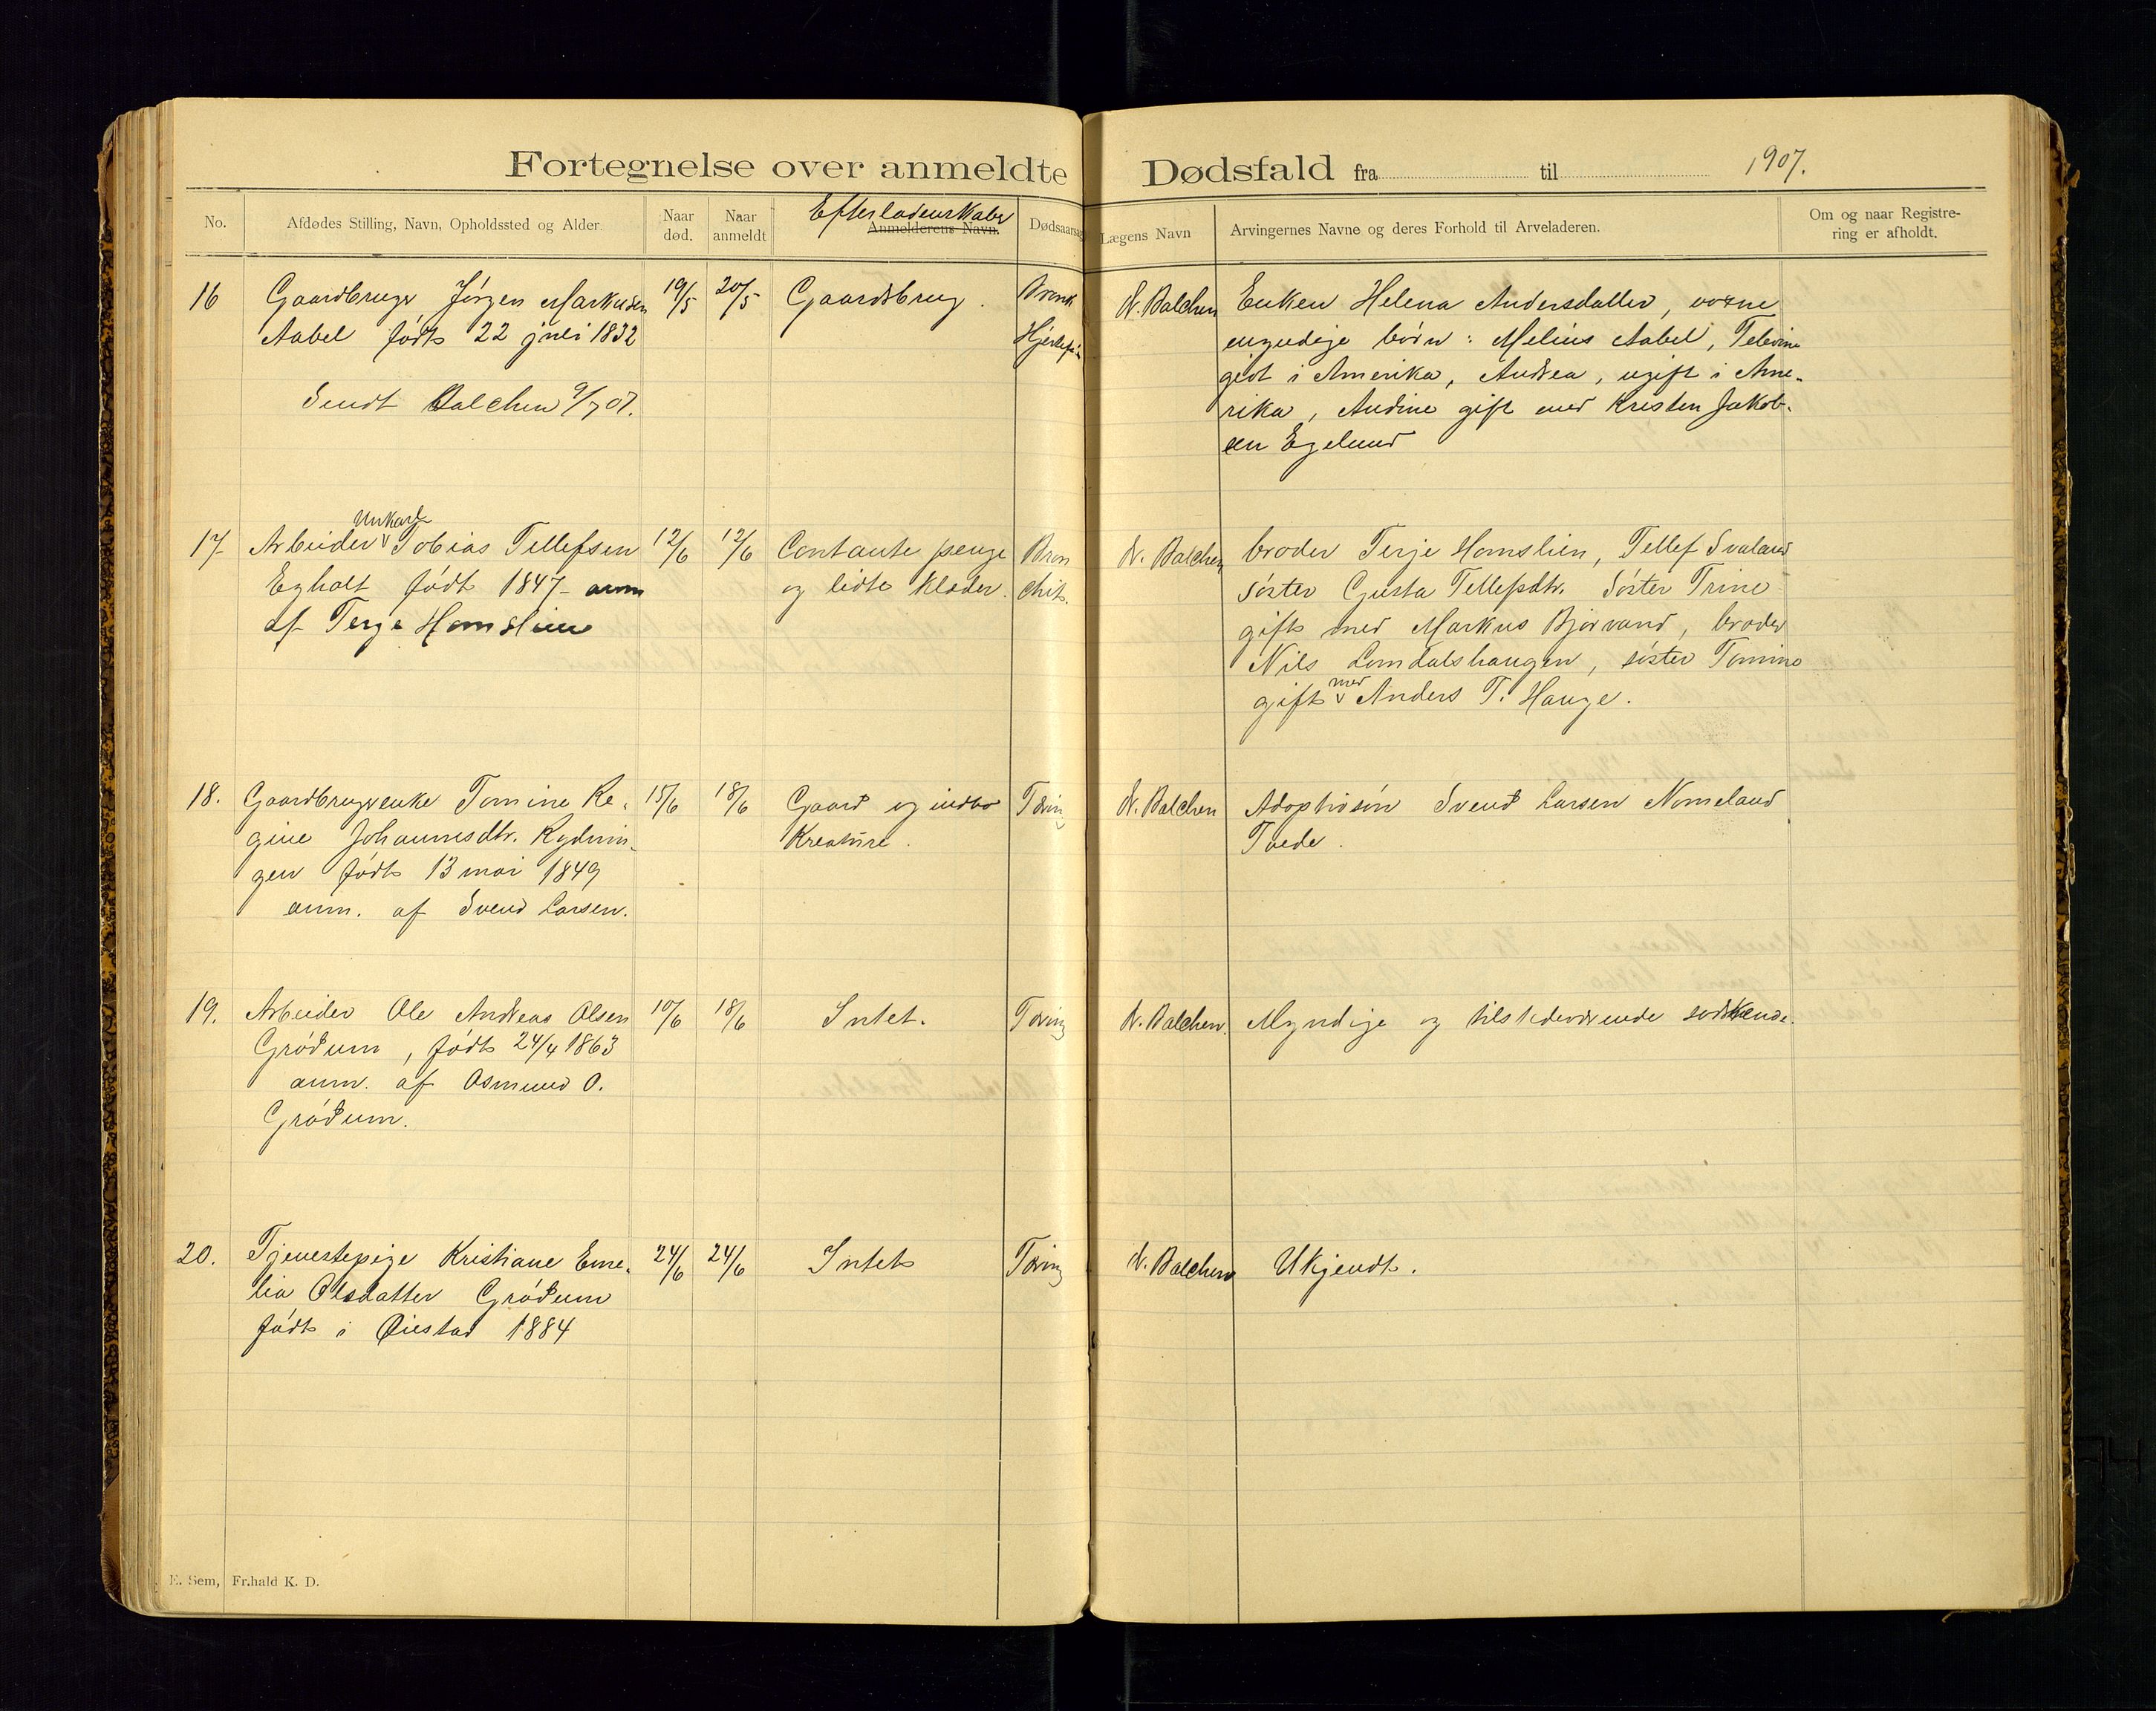 Fortegnelse over anmeldte Dødsfald fra til 1907.
No. Afdødes Stilling, Navn, Opholdssted og Alder. Naar død. Naar anmeldt Efterladenskaber Anmelderens Navn. Dødsaarsag Lægens Navn Arvingernes Navne og deres Forhold til Arveladeren. Om og naar Registrering er afholdt.
16 Gaardbruger Jörgen Markusen 19/5 20/5 Gaardsbrug.
Aabel födt 22 juli 1832
Sendt Balchen 9/7 07.
Dr. Balchen Enken Helena Andersdatter, voxne
myndige börn: Melius Aabel,
gift i Amerika, Andrea, ugift i Ame-
rika, Andine gift med Kristen Jakob-
sen Egeland
17 Arbeider Unkarl Tobias Tellefsen 12/6 12/6 Contante penge Bron
Egholt födt 1847 anm og lidt klæder. chit.
af Terje Homslien
Dr. Balchen broder Terje Homslien, Tellef Svaland
söster Gusta Tellefsdtr. Söster Trine
gift med Markus Bjorvand, broder
Nils Lomdalshaugen, söster Tomine
gift med Anders T. Hauge.
18. Gaardbrugerenke Tomine Re- 15/6 18/6 Gaard og indbo Tæring
gine Johannesdtr. Rydnin- Kreature.
gen födt 13 mai 1849
anm. af Svend Larsen.
Dr. Balchen Adoptivsön Svend Larsen Nomeland
Tvede.
19. Arbeider Ole Andreas Olsen 10/6 18/6 Intet. Tæring
Grödum, födt 24/4 1863
anm. af Osmund O.
Grödum.
Dr. Balchen. Myndige og tilstedeværende södskende.
20. Tjenestepige Kristiane Eme- 24/6 24/6 Intet Tæring
lia Olsdatter Grödum
födt i Øiestad 1884
Dr. Balchen Ukjendt.
E. Sem, Fr.hald K. D.